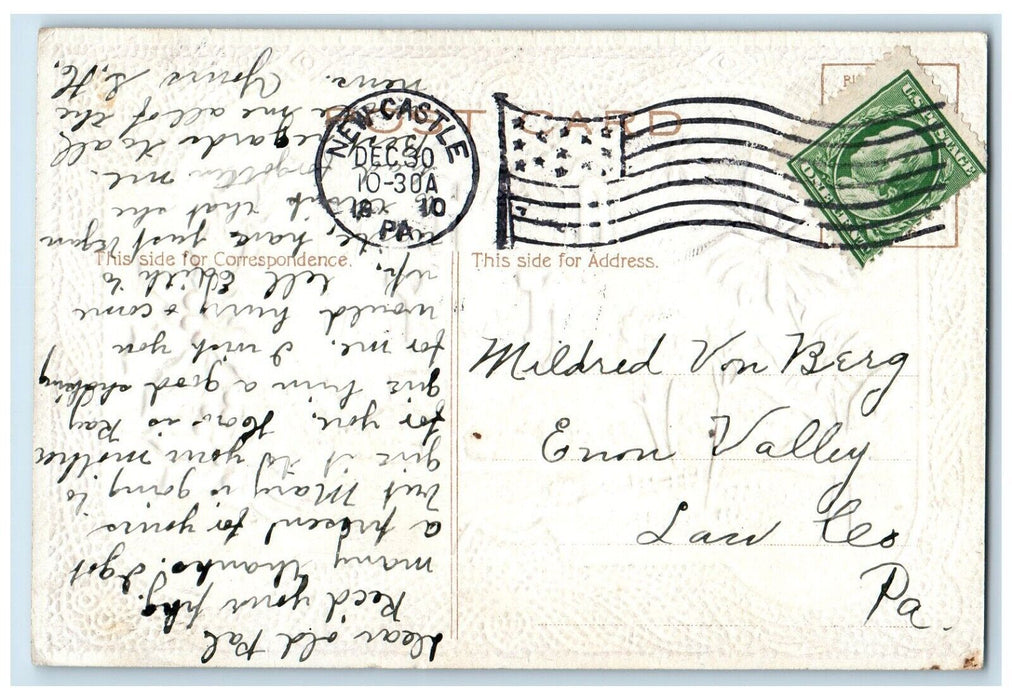 POST CARD
NEW CASTLE
DEC 30
10-30A
19 10
PA.
U.S. POSTAGE
This side for Correspondence.
This side for Address.
Mildred Von Berg
Enon Valley
Law Co
Pa.
Dear old Pal
Recd your pkg.
many thanks. I got
a present for yours
but Mary is going to
give it to your mother
for you. How is Ray
give him a good shaking
for me. I wish you
would hurry & come
up. Tell Edith to
write, have just began
to think that she
forgotten me.
regards to all
me all of the
news. Yours S. H.